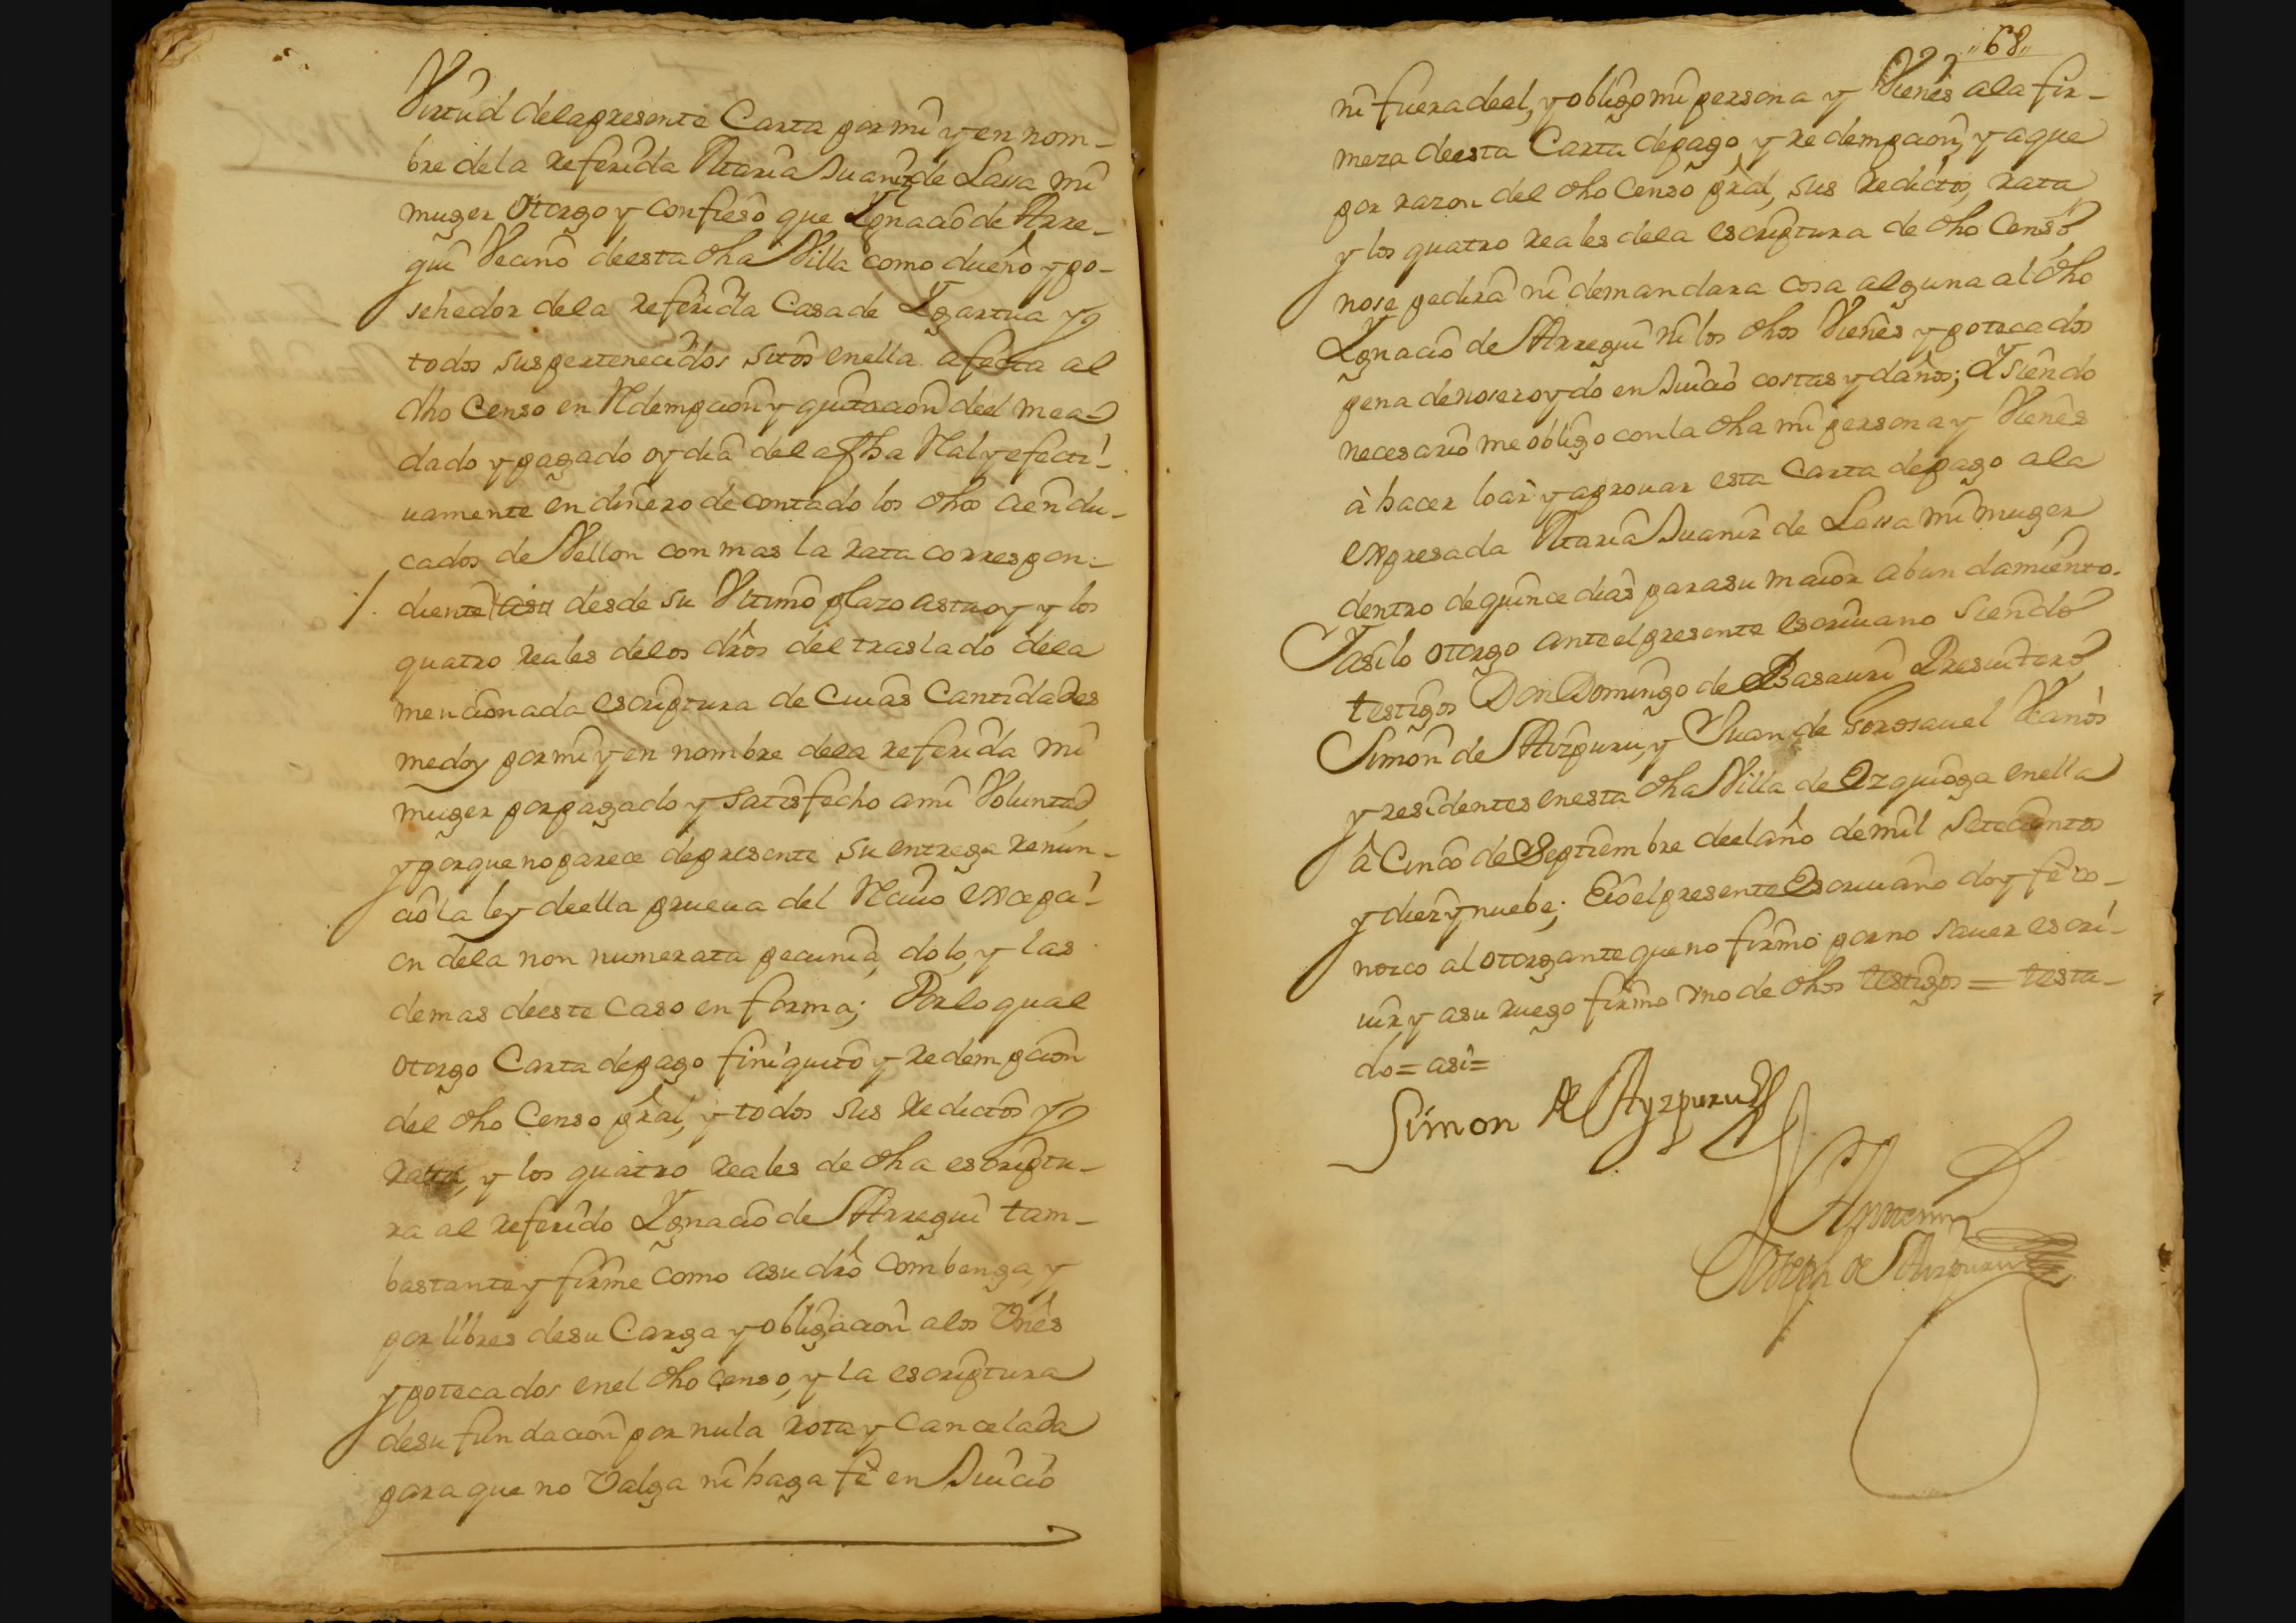 Virtud delapresente Carta por mi y en nom-
bre de la referida Maria Juaniz de Lasa mi
muger otorgo y confieso que Ignacio de Arre-
gui Vecino deesta dha Villa como dueño y po-
sehedor de la referida Casa de Igartua y
todos sus pertenecidos sitos en ella afecta al
dho Censo en Redempcion y quitacion del me a
dado y pagado oy dia de la fha Real y efecti-
uamente en dinero de contado los dhos cien du-
cados de Vellon con mas la rata correspon-
diente asi desde su Vltimo plazo asta oy y los
quatro reales de los dros del traslado de la
mencionada escriptura de cuias Cantidades
me doy por mi y en nombre de la referida mi
muger por pagado y satisfecho a mi Voluntad
y porque no parece de presente su entrega renun-
cio la ley de ella prueua del Recivo excepci-
on de la non numerata pecunia, dolo, y las
demas deeste Caso en forma; Por lo qual
otorgo Carta de pago finiquito y redempcion
del dho Censo pral, y todos sus redictos y
rata, y los quatro reales de dha escriptu-
ra al referido Ignacio de Arregui tam-
bastante y firme como a su dro combenga, y
por libres de su Carga y obligacion a los Vnes
ypotecados en el dho Censo, y la escriptura
de su fundacion por nula rota y Cancelada
para que no Valga ni haga fè en Juicio
"68"
ni fuera deel, y obligo mi persona y Vienes a la fir-
meza deesta Carta de pago y redempcion, y a que
por razon del dho Censo pral, sus redictos, rata
y los quatro reales de la escriptura de dho Censo
no se pedira ni demandara cosa alguna al dho
Ignacio de Arregui ni los dhos Vienes ypotecados
pena de no ser oydo en Juicio costas y daños; Y siendo
necesario me obligo con la dha mi persona y Vienes
à hacer loar y aprouar esta Carta de pago a la
expresada Maria Juaniz de Lassa mi muger
dentro de quince dias para su maior abundamiento.
Y asi lo otorgo ante el presente escriuano siendo
testigos Don Domingo de Basauri Presuitero
Simon de Aizpuru, y Juan de Gorosauel Vecinos
y residentes en esta dha Villa de Ezquioga en ella
â Cinco de Septiembre de el año de mil setecientos
y diez y nuebe; E io el presente Escriuano doy fè co-
nozco al otorgante que no firmo por no sauer escri-
uir y a su ruego firmo vno de dhos testigos = testa-
do = asi =
Simon de Ayzpuru
Ante mi
Joseph de Aizpuru